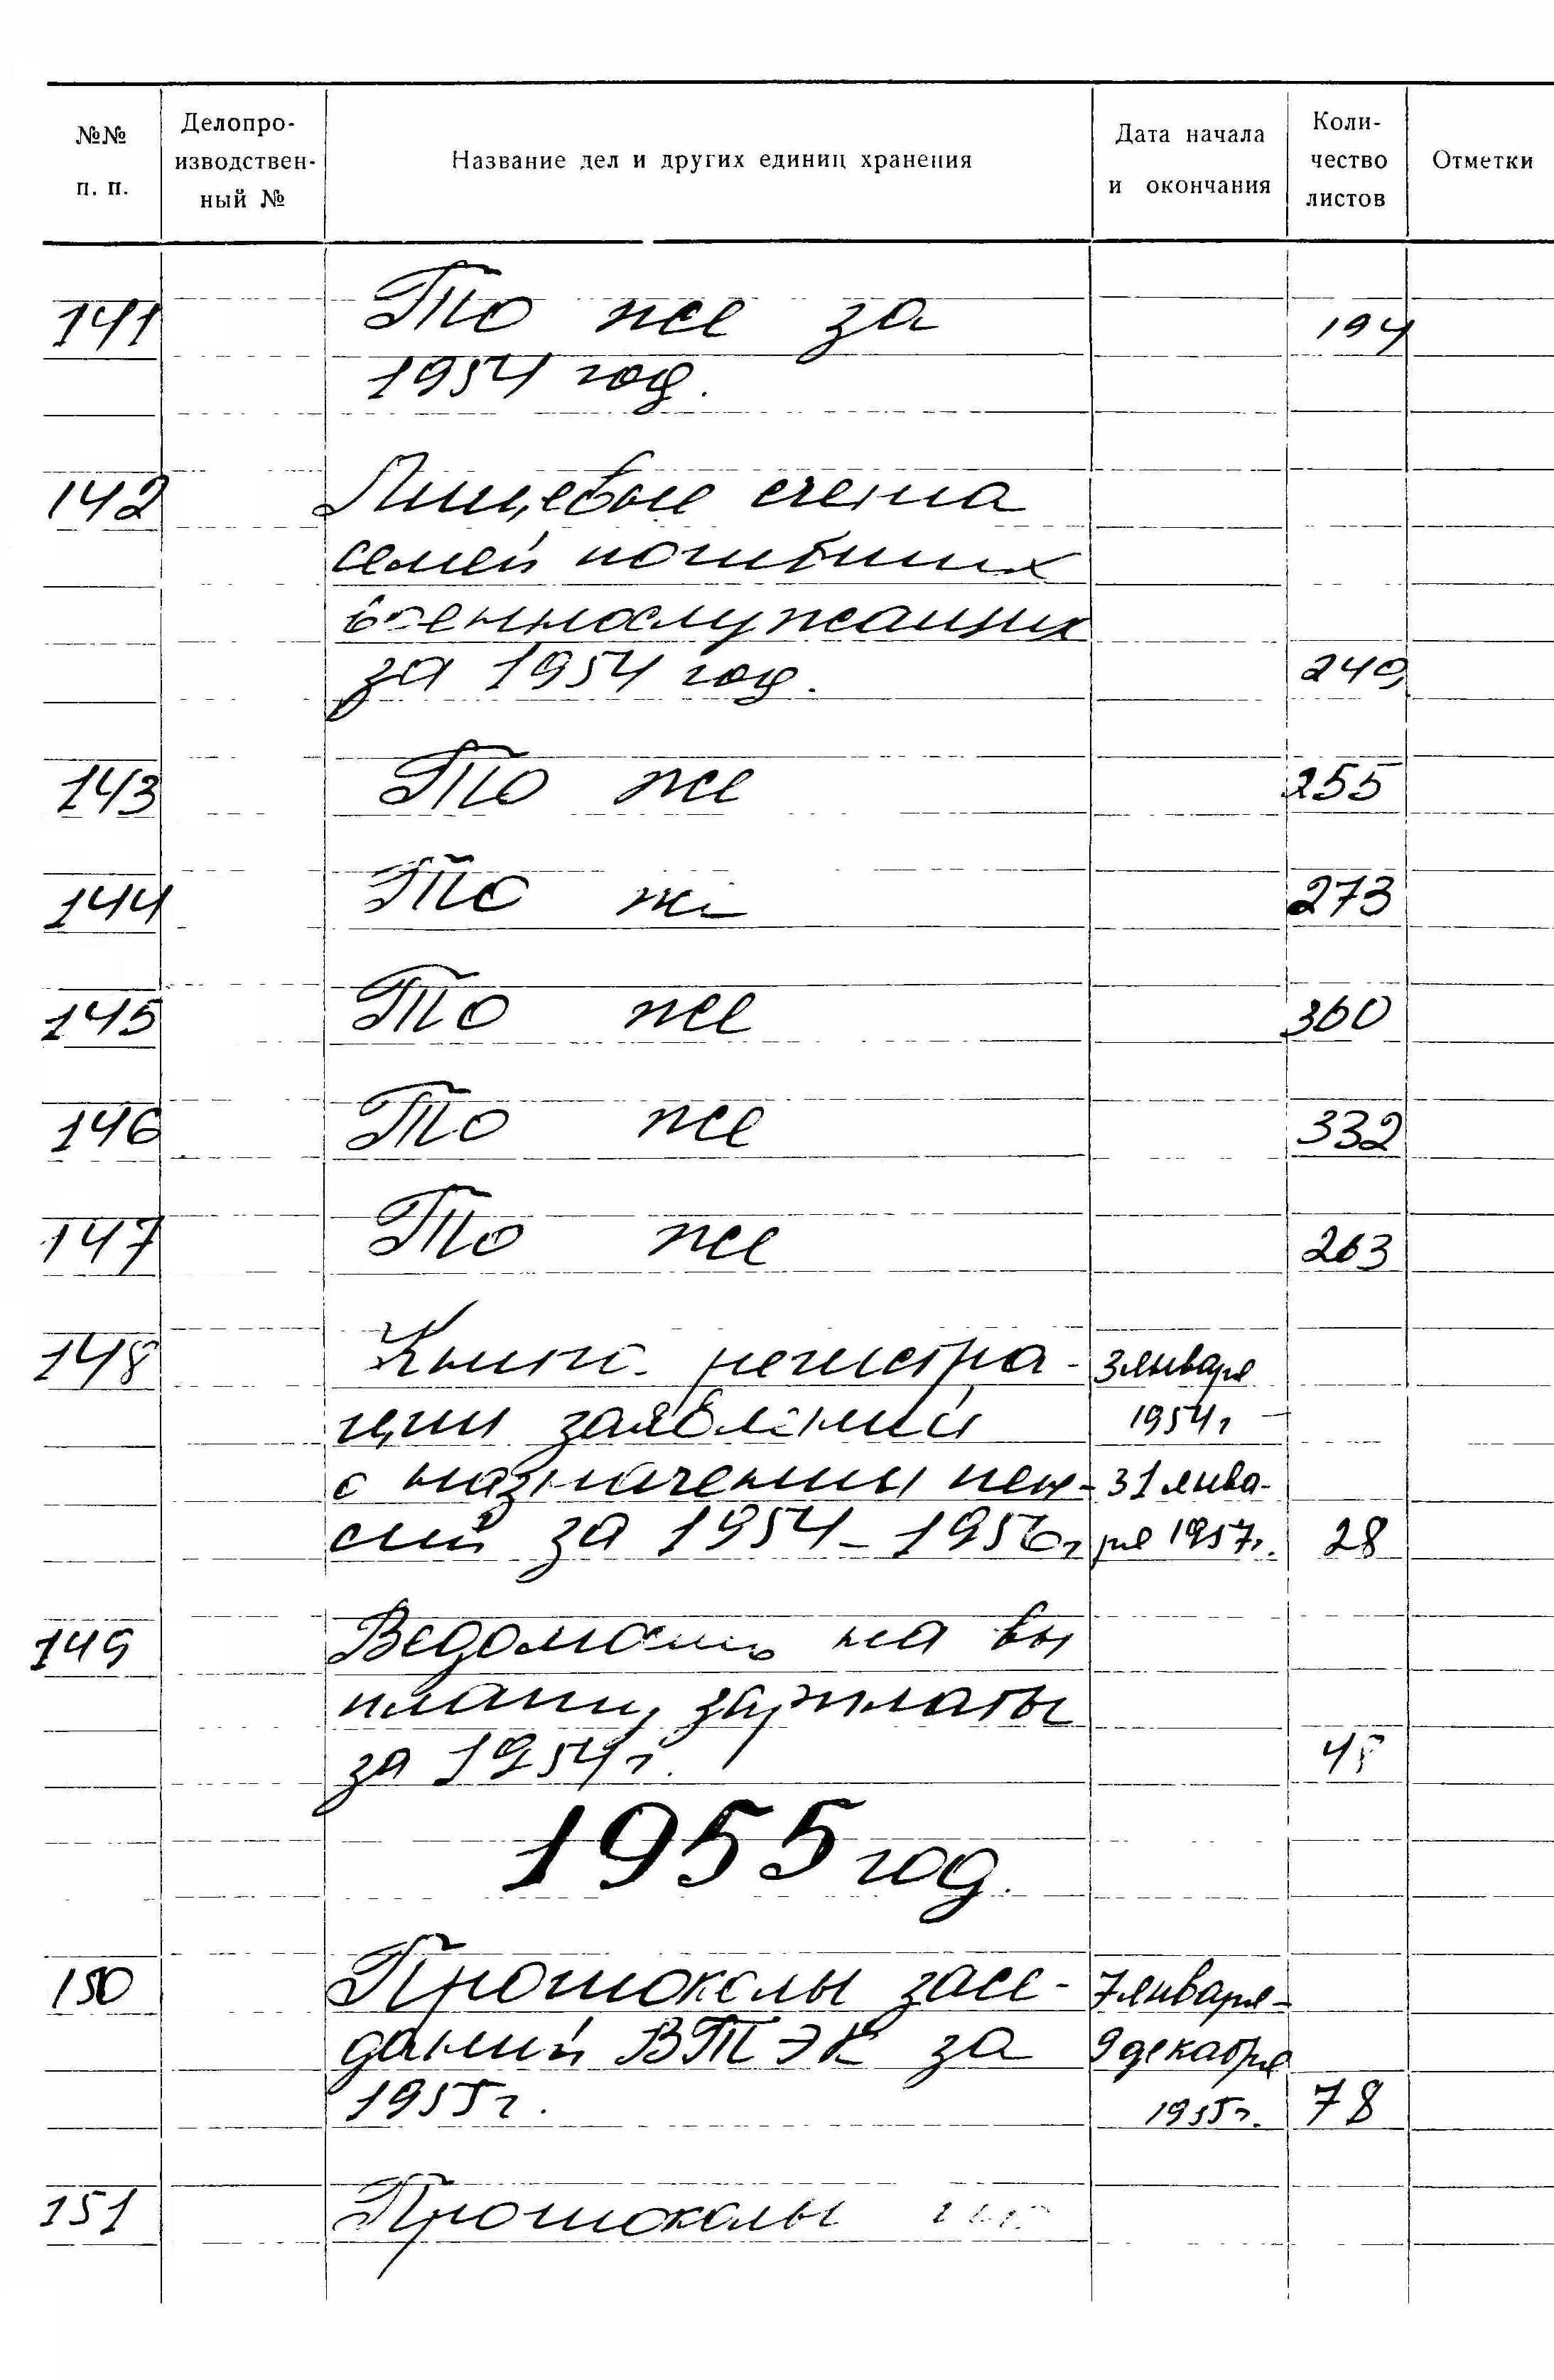 №№ п. п.
Делопро-
изводствен-
ный №
Название дел и других единиц хранения
Дата начала
и окончания
Коли-
чество
листов
Отметки
141 То же за 194
1954 год.
142 Лицевые счета
семей погибших
военнослужащих
за 1954 год. 240
143 То же 255
144 То же 273
145 То же 360
146 То же 332
147 То же 263
148 Книга регистра- 3 января
ции заявлений 1954 г -
о назначении пен- 31 янва-
сий за 1954-1956г ря 1957г. 28
149 Ведомость на вы
плату зарплаты
за 1954г.
1955 год.
150 Протоколы засе- 7 января-
даний ВТЭК за 9 декабря
1955г. 1955г. 78
151 Протоколы